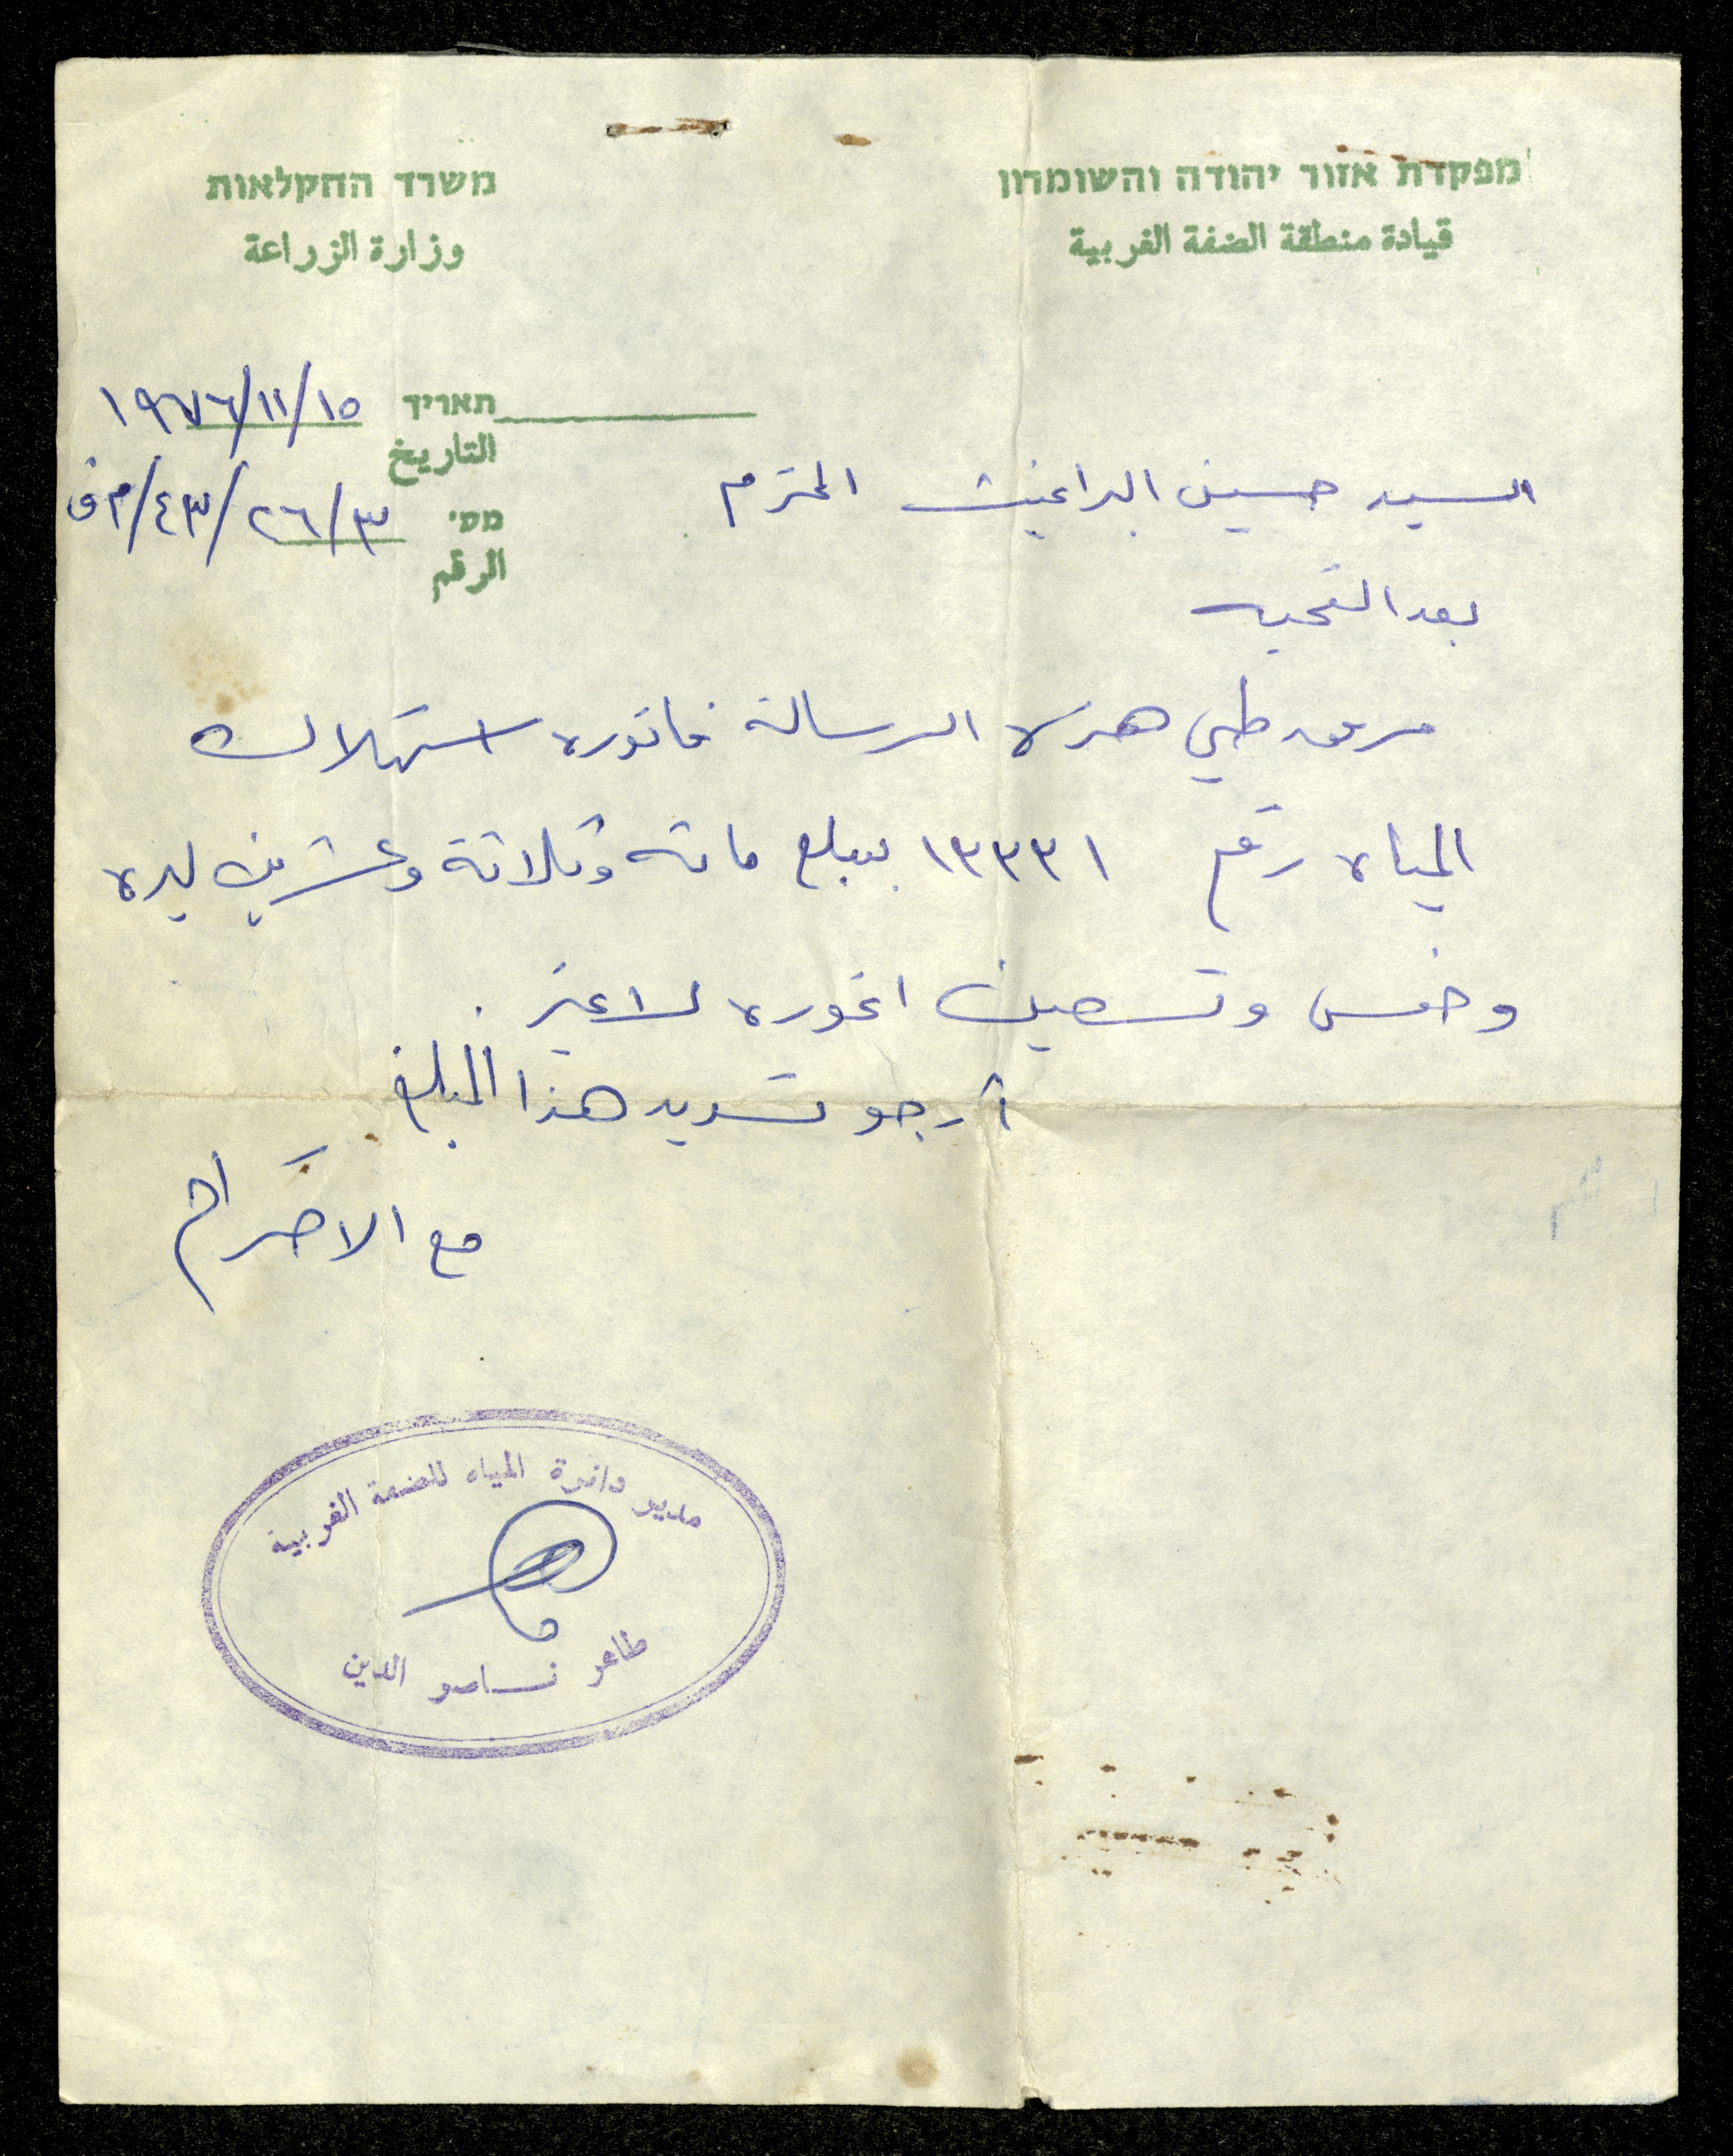 מפקדת אזור יהודה והשומרון
قيادة منطقة الضفة الغربية
משרד החקלאות
وزارة الزراعة
תאריך ١٩٧٦/١١/١٥
التاريخ
מס׳ ٣/٢٦/٤٣/م ف
الرقم
السيد حسين البراغيث المحترم
بعد التحيه
مرفق طي هذه الرسالة فاتوره استهلاك
المياه رقم ١٣٣٣١ بمبلغ مائه وثلاثة وعشرين ليره
وخمس وتسعين اغوره لا غير .
أرجو تسديد هذا المبلغ
مع الاحترام
مدير دائرة المياه للضفة الغربية
طاهر ناصر الدين